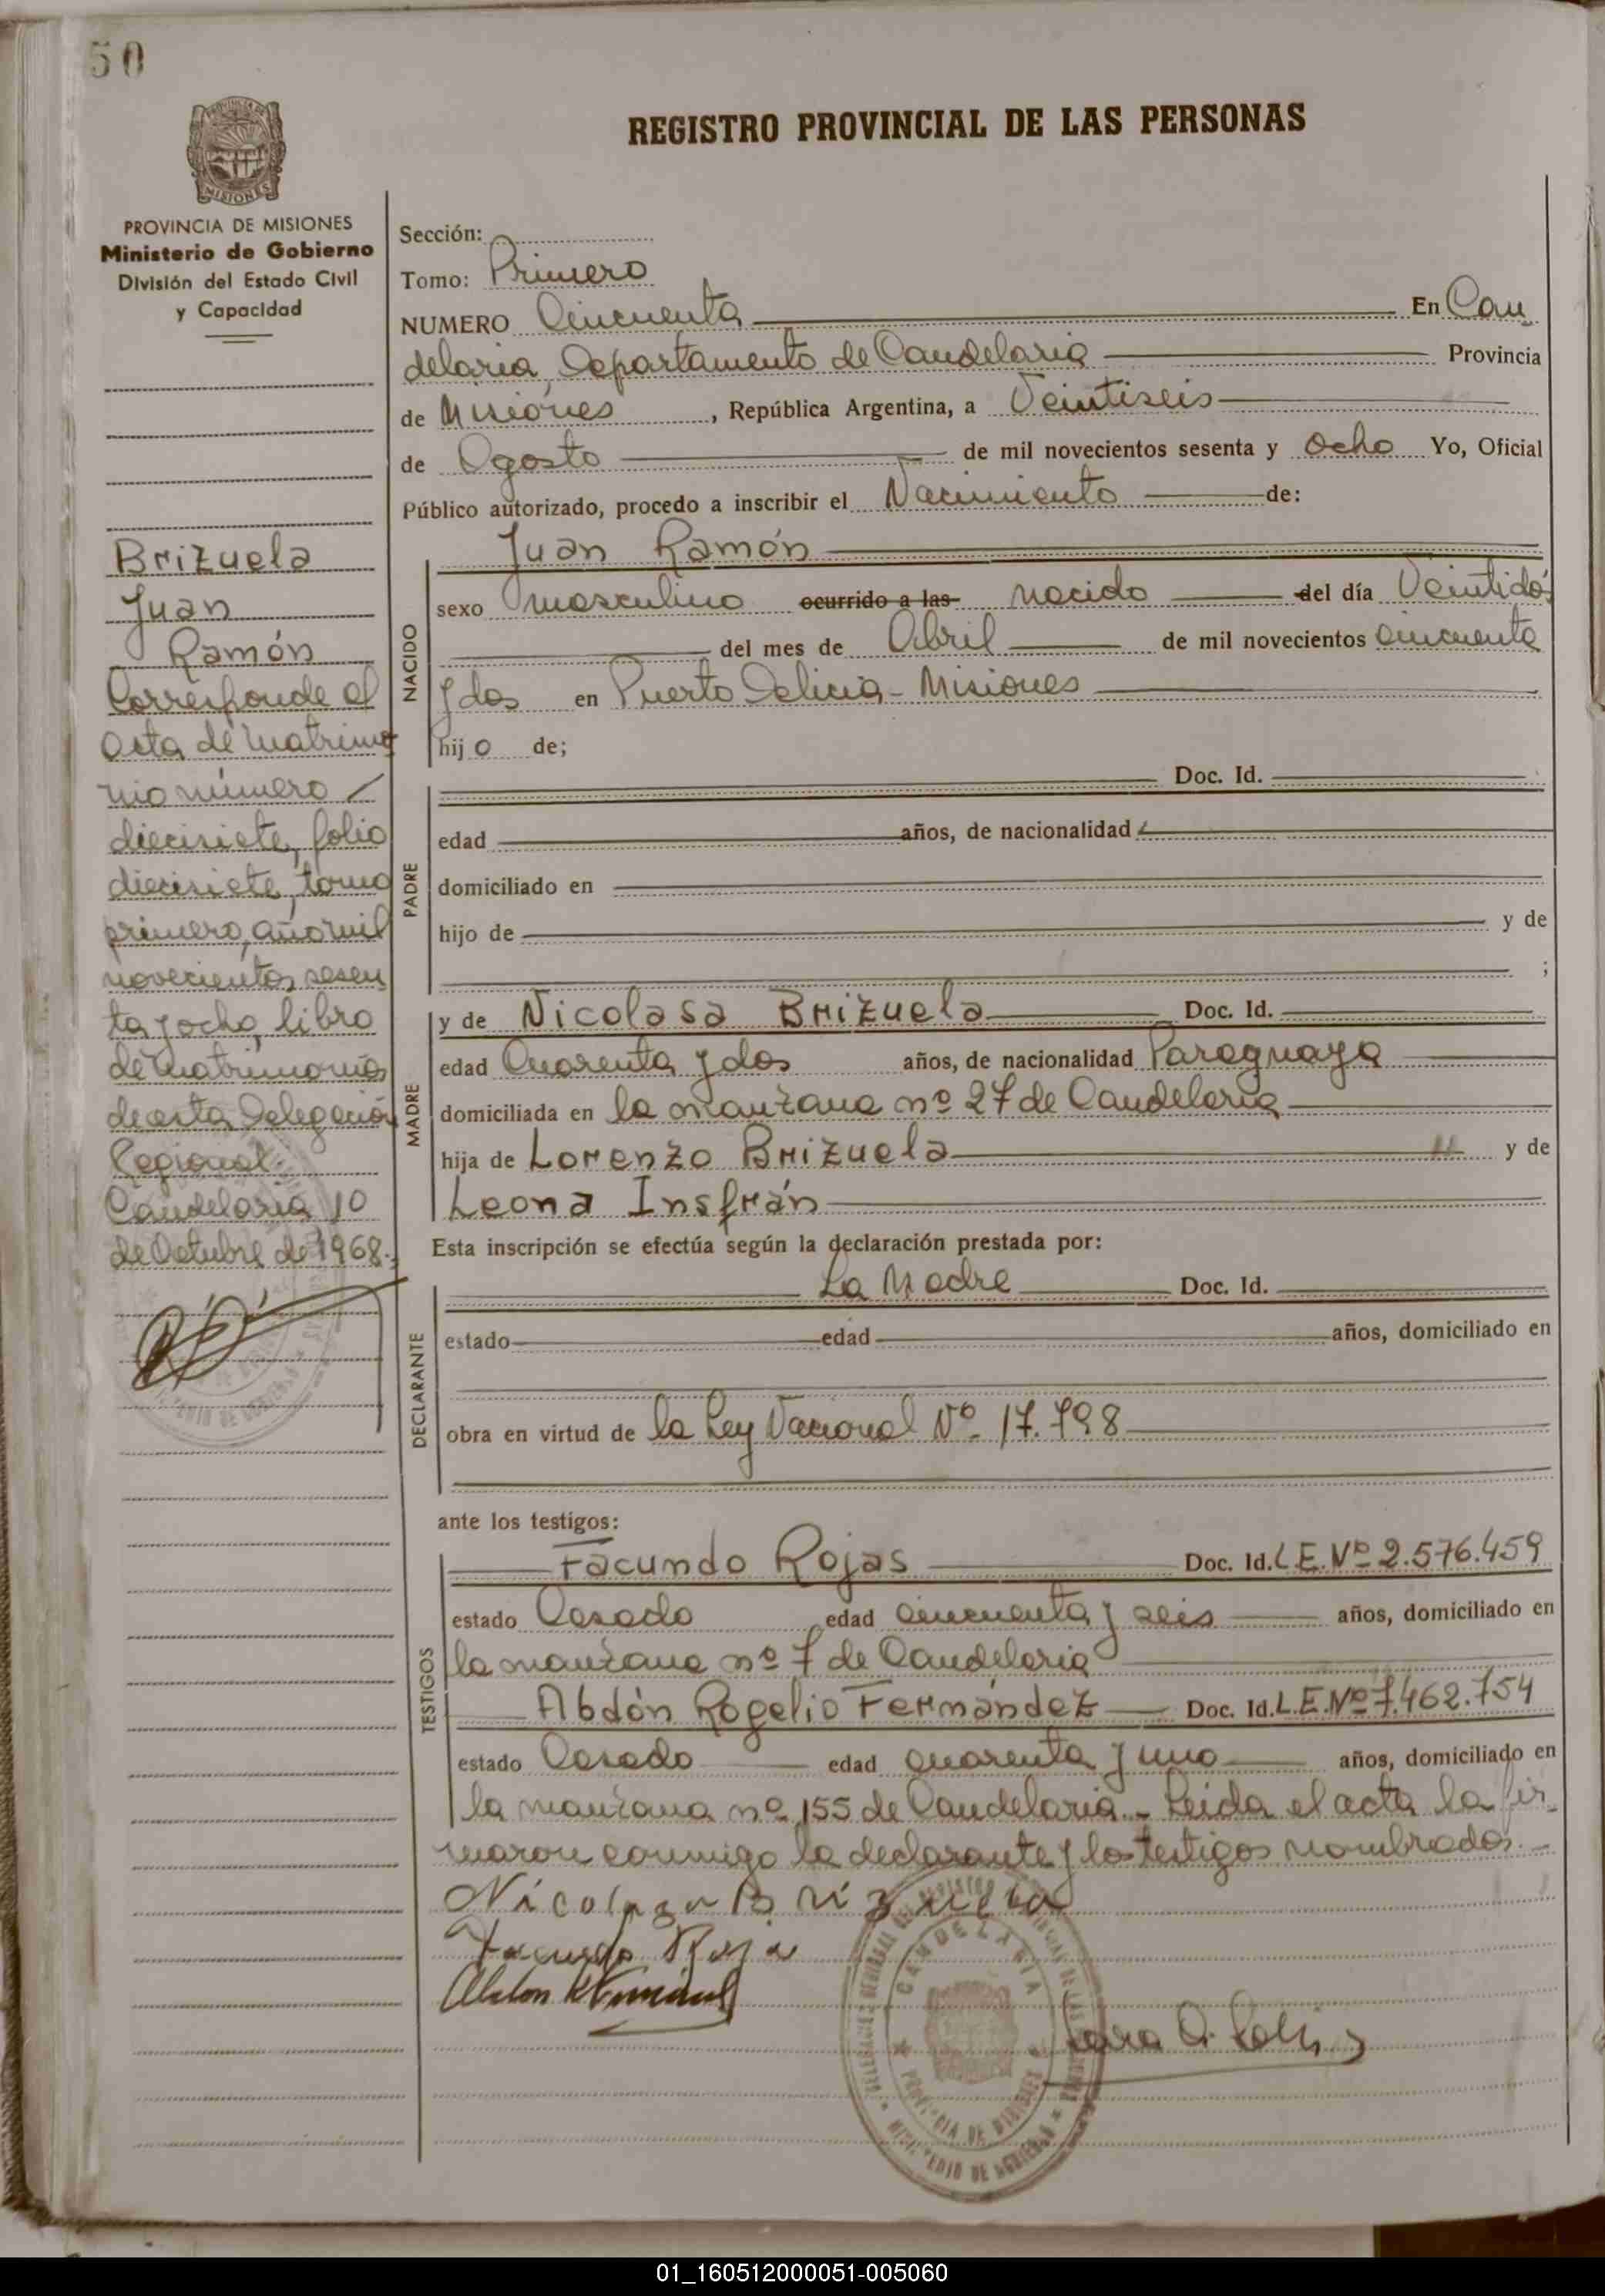 50
REGISTRO PROVINCIAL DE LAS PERSONAS
PROVINCIA DE MISIONES
Ministerio de Gobierno
División del Estado Civil
y Capacidad
Brizuela
Juan
Ramón
Corresponde al
acta de matrimo
nio número
diecisiete, folio
diecisiete, tomo
primero, año mil
novecientos sesen
ta y ocho, libro
de matrimonios
de esta Delegación
Regional.
Candelaria 10
de Octubre de 1968.
Sección:
Tomo: Primero
NUMERO Cincuenta En Can
delaria, Departamento de Candelaria Provincia
de Misiones, República Argentina, a Veintiseis
de Agosto de mil novecientos sesenta y ocho Yo, Oficial
Público autorizado, procedo a inscribir el Nacimiento de:
NACIDO
Juan Ramón
sexo masculino ocurrido a las nacido del día Veintidós
del mes de Abril de mil novecientos cincuenta
y dos en Puerto Delicia - Misiones
hijo de;
PADRE
Doc. Id.
edad años, de nacionalidad
domiciliado en
hijo de y de
;
MADRE
y de Nicolasa Brizuela Doc. Id.
edad Cuarenta y dos años, de nacionalidad Paraguaya
domiciliada en la manzana nº 27 de Candelaria
hija de Lorenzo Brizuela y de
Leona Insfrán
Esta inscripción se efectúa según la declaración prestada por:
DECLARANTE
La Madre Doc. Id.
estado edad años, domiciliado en
obra en virtud de la Ley Nacional Nº 17.798
ante los testigos:
TESTIGOS
Facundo Rojas Doc. Id. L.E. Nº 2.576.459
estado Casado edad cincuenta y seis años, domiciliado en
la manzana nº 7 de Candelaria
Abdón Rogelio Fernández Doc. Id. L.E. Nº 7.462.754
estado Casado edad cuarenta y uno años, domiciliado en
la manzana nº 155 de Candelaria.- Leida el acta la fir_
maron conmigo la declarante y los testigos nombrados.-
Nicolasa Brizuela
Facundo Roja
CANDELARIA
PROVINCIA DE MISIONES
MINISTERIO DE GOBIERNO
01_160512000051-005060